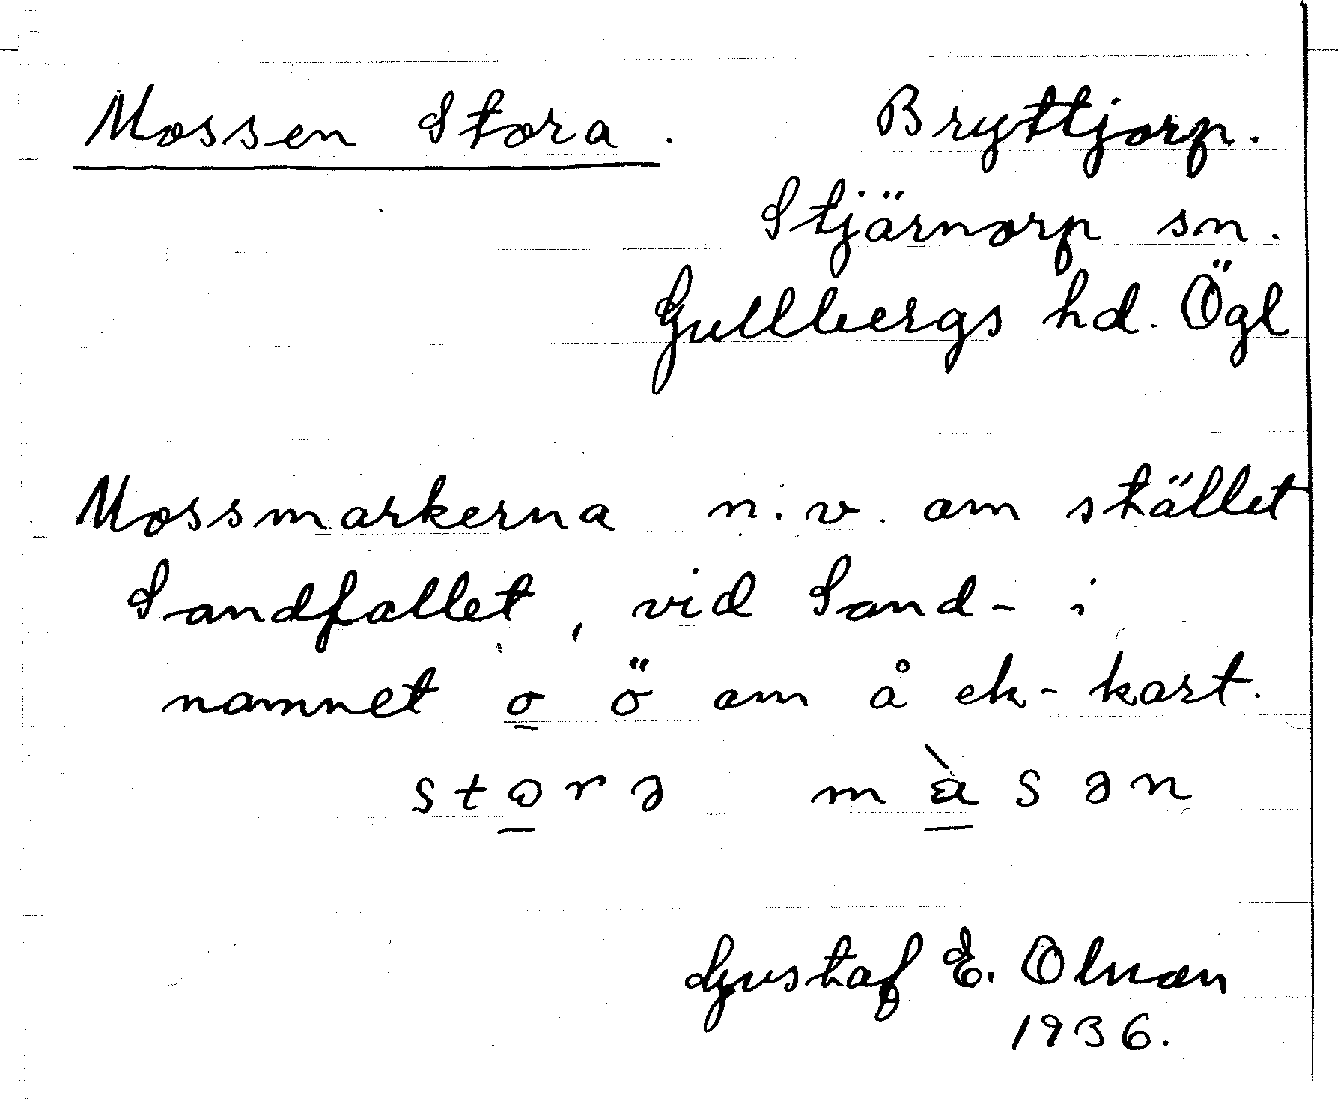 Mossen Stora. Bryttjorp.
Stjärnorp sn.
Gullbergs hd. Ögl
Mossmarkerna n.v. om stället
Sandfallet, vid Sand- i
namnet o ö om å ek-kart.
storə màsən
Gustaf E. Olman
1936.